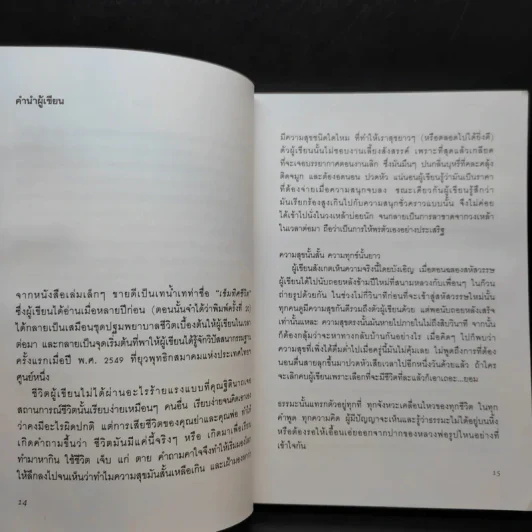 คำนำผู้เขียน
จากหนังสือเล่มเล็กๆ ขายดีเป็นเทน้ำเทท่าชื่อ "เข็มทิศชีวิต"
ซึ่งผู้เขียนได้อ่านเมื่อหลายปีก่อน (ตอนนั้นจำได้ว่าพิมพ์ครั้งที่
ได้กลายเป็นเสมือนชุดปฐมพยาบาลชีวิตเบื้องต้นให้ผู้เขียนในเวลา
ต่อมา และกลายเป็นจุดเริ่มต้นที่พาให้ผู้เขียนได้รู้จักวิปัสสนากรรมฐาน
ครั้งแรกเมื่อปี พ.ศ. 2549 ที่ยุวพุทธิกสมาคมแห่งประเทศไทย
ศูนย์หนึ่ง
ชีวิตผู้เขียนไม่ได้ผ่านอะไรร้ายแรงแบบที่คุณฐิตินาถ
สถานการณ์ชีวิตนั้นเรียบง่ายเหมือนๆ คนอื่น เรียบง่ายจนคิดเอา
ว่าคงมีอะไรผิดปกติ แต่การเสียชีวิตของคุณย่าและคุณพ่อ ทำให้
เกิดคำถามขึ้นว่า ชีวิตมันมีแค่นี้จริงๆ หรือ เกิดมาเพื่อเรียน
ทำมาหากิน ใช้ชีวิต เจ็บ แก่ ตาย คำถามคาใจจึงทำให้เริ่มมอง
ให้ลึกลงไปจนเห็นว่าทำไมความสุขมันสั้นเหลือเกิน และเฝ้ามอง
14
มีความสุขชนิดใดไหม ที่ทำให้เราสุขยาวๆ (หรือตลอดไปได้ยิ่งดี)
ตัวผู้เขียนนั้นไม่ชอบงานเลี้ยงสังสรรค์ เพราะที่สุดแล้วเกลียด
ที่จะเจอบรรยากาศตอนงานเลิก ซึ่งมันมึนๆ ปนกลิ่นบุหรี่ที่คละคลุ้ง
ติดจมูก และต้องอดนอน ปวดหัว แน่นอนผู้เขียนรู้ว่ามันเป็นราคา
ที่ต้องจ่ายเมื่อความสนุกจบลง ขณะเดียวกันผู้เขียนรู้สึกว่า
มันเรียกร้องสูงเกินไปกับความสนุกชั่วคราวแบบนั้น จึงไม่ค่อย
ได้เข้าไปนั่งในวงเหล้าบ่อยนัก จนกลายเป็นการลาขาดจากวงเหล้า
ในเวลาต่อมา ถือว่าเป็นการให้พรตัวเองอย่างประเสริฐ
ความสุขนั้นสั้น ความทุกข์นั้นยาว
ผู้เขียนสังเกตเห็นความจริงนี้โดยบังเอิญ เมื่อตอนฉลองสหัสวรรษ
ผู้เขียนได้ไปนับถอยหลังข้ามปีใหม่ที่สนามหลวงกับเพื่อนๆ ในก๊วน
ถ่ายรูปด้วยกัน ในช่วงไม่กี่วินาทีก่อนที่จะเข้าสู่สหัสวรรษใหม่นั้น
ทุกคนดูมีความสุขกันตัวตรึงใจและยินดี แต่พอนับถอยหลังเสร็จ
เท่านั้นแหละ ความสุขตรงนั้นมันหายไปภายในไม่ถึงสิบวินาที จากนั้น
ก็ต้องกลุ้มว่าจะหาทางกลับบ้านกันอย่างไร เมื่อคิดๆ ไปก็พบว่า
ความสุขที่เพิ่งได้ดื่มด่ำไปเมื่อครู่นี้มันไม่คุ้มเลย ไม่พูดถึงการที่ต้อง
นอนตื่นสายลุกขึ้นมาปวดหัวเสียเวลาไปอีกหนึ่งวันด้วยแล้ว ถ้าใคร
จะเลิกคบผู้เขียนเพราะเลือกที่จะมีชีวิตที่สะแล้วก็เอาเถอะ...ยอม
ธรรมะนั้นแทรกตัวอยู่ทุกที่ ทุกจังหวะเคลื่อนไหวของทุกชีวิต ในทุก
คำพูด ทุกความคิด ผู้มีปัญญาจะเห็นและรู้ว่าธรรมะไม่ได้อยู่บนหิ้ง
หรือต้องรอให้เอื้อนเอ่ยออกจากปากของหลวงพ่อรูปไหนอย่างที่
เข้าใจกัน
15